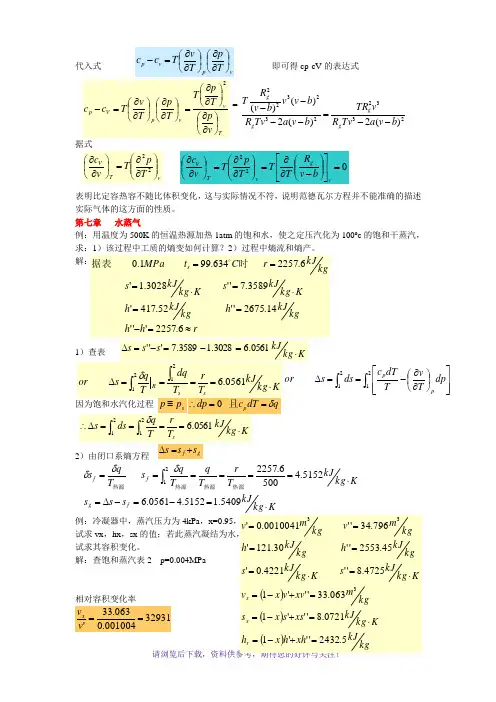 代入式 c_p − c_v = T(∂v/∂T)_p (∂p/∂T)_v 即可得 cp-cV 的表达式
c_p − c_V = T(∂v/∂T)_p (∂p/∂T)_v = T(∂p/∂T)_v^2 / (∂p/∂v)_T = [T R_g^2/(v−b)^2 · v^3(v−b)^2] / [R_g T v^3 − 2a(v−b)^2] = T R_g^2 v^3 / [R_g T v^3 − 2a(v−b)^2]
据式
(∂c_V/∂v)_T = T(∂^2 p/∂T^2)_v (∂c_V/∂v)_T = T(∂^2 p/∂T^2)_v = T[∂/∂T (R_g/(v−b))]_v = 0
表明比定容热容不随比体积变化,这与实际情况不符,说明范德瓦尔方程并不能准确的描述
实际气体的这方面的性质。
第七章 水蒸气
例:用温度为 500K 的恒温热源加热 1atm 的饱和水,使之定压汽化为 100ºc 的饱和干蒸汽,
求:1)该过程中工质的熵变如何计算?2)过程中熵流和熵产。
解:
据表 0.1MPa t_s = 99.634°C时 r = 2257.6 kJ/kg
s' = 1.3028 kJ/kg·K s'' = 7.3589 kJ/kg·K
h' = 417.52 kJ/kg h'' = 2675.14 kJ/kg
h'' − h' = 2257.6 ≈ r
1)查表 Δs = s'' − s' = 7.3589 − 1.3028 = 6.0561 kJ/kg·K
or Δs = ∫_1^2 δq/T|_R = ∫_1^2 dq / T_s = r/T_s = 6.0561 kJ/kg·K or Δs = ∫_1^2 ds = ∫_1^2 [c_p dT/T − (∂v/∂T)_p dp]
因为饱和水汽化过程 p ≡ p_s ∴dp = 0 且c_p dT = δq
∴Δs = ∫_1^2 ds = ∫_1^2 δq/T = r/T_s = 6.0561 kJ/kg·K
2)由闭口系熵方程 Δs = s_f + s_g
δs_f = δq/T_热源 s_f = ∫_1^2 δq/T_热源 = q/T_热源 = r/T_热源 = 2257.6/500 = 4.5152 kJ/kg·K
s_g = Δs − s_f = 6.0561 − 4.5152 = 1.5409 kJ/kg·K
例:冷凝器中,蒸汽压力为 4kPa,x=0.95,
试求 vx,hx,sx 的值;若此蒸汽凝结为水,
试求其容积变化。
解:查饱和蒸汽表 2 p=0.004MPa
v' = 0.0010041 m^3/kg v'' = 34.796 m^3/kg
h' = 121.30 kJ/kg h'' = 2553.45 kJ/kg
s' = 0.4221 kJ/kg·K s'' = 8.4725 kJ/kg·K
v_x = (1−x)v' + xv'' = 33.063 m^3/kg
s_x = (1−x)s' + xs'' = 8.0721 kJ/kg·K
h_x = (1−x)h' + xh'' = 2432.5 kJ/kg
相对容积变化率
v_x/v' = 33.063/0.001004 = 32931
请浏览后下载,资料供参考,期待您的好评与关注!